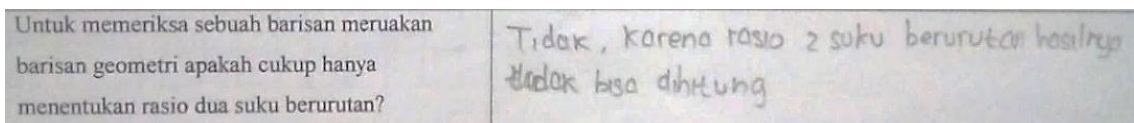 Untuk memeriksa sebuah barisan meruakan
barisan geometri apakah cukup hanya
menentukan rasio dua suku berurutan?
Tidak, Karena rasio 2 suku berurutan hasilnya
tidak bisa dihitung